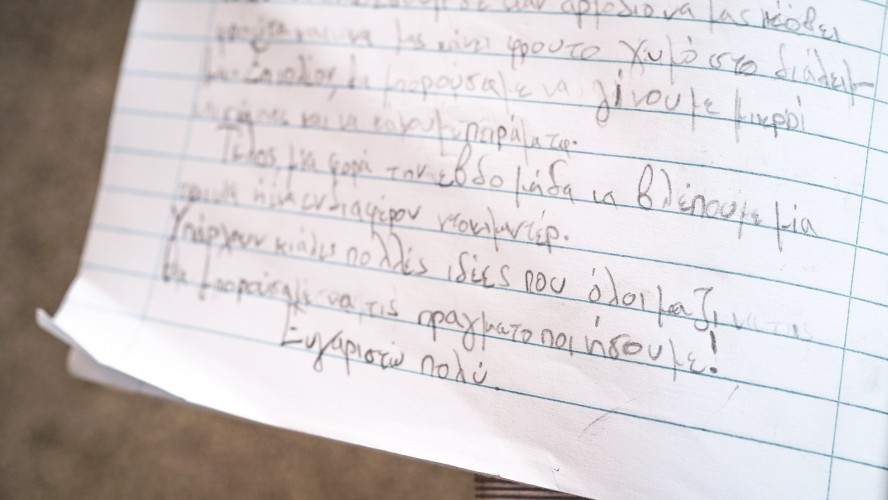 αρμόδιο να μας κόβει
και να μας κάνει φρουτο χυμό στο διάλειμ-
θα μπορούσαμε να γίνουμε μικροί
και να κάνουμε πειράματα.
Τέλος, μία φορά την εβδομάδα να βλέπουμε μία
ταινία ή ένα ενδιαφέρον ντοκιμαντέρ.
Υπάρχουν κι άλλες πολλές ιδέες που όλοι μαζί
θα μπορούσαμε να τις πραγματοποιήσουμε!
Ευχαριστώ πολύ.